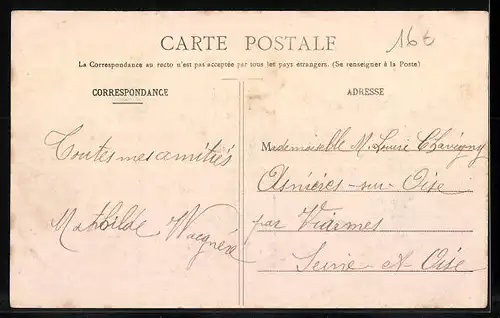 CARTE POSTALE
16€
La Correspondance au recto n'est pas acceptée par tous les pays étrangers. (Se renseigner à la Poste)
CORRESPONDANCE
Toutes mes amitiés
Mathilde
ADRESSE
Mademoiselle M. Louise Chavigny
Asnières-sur-Oise
par Viarmes
Seine-et-Oise